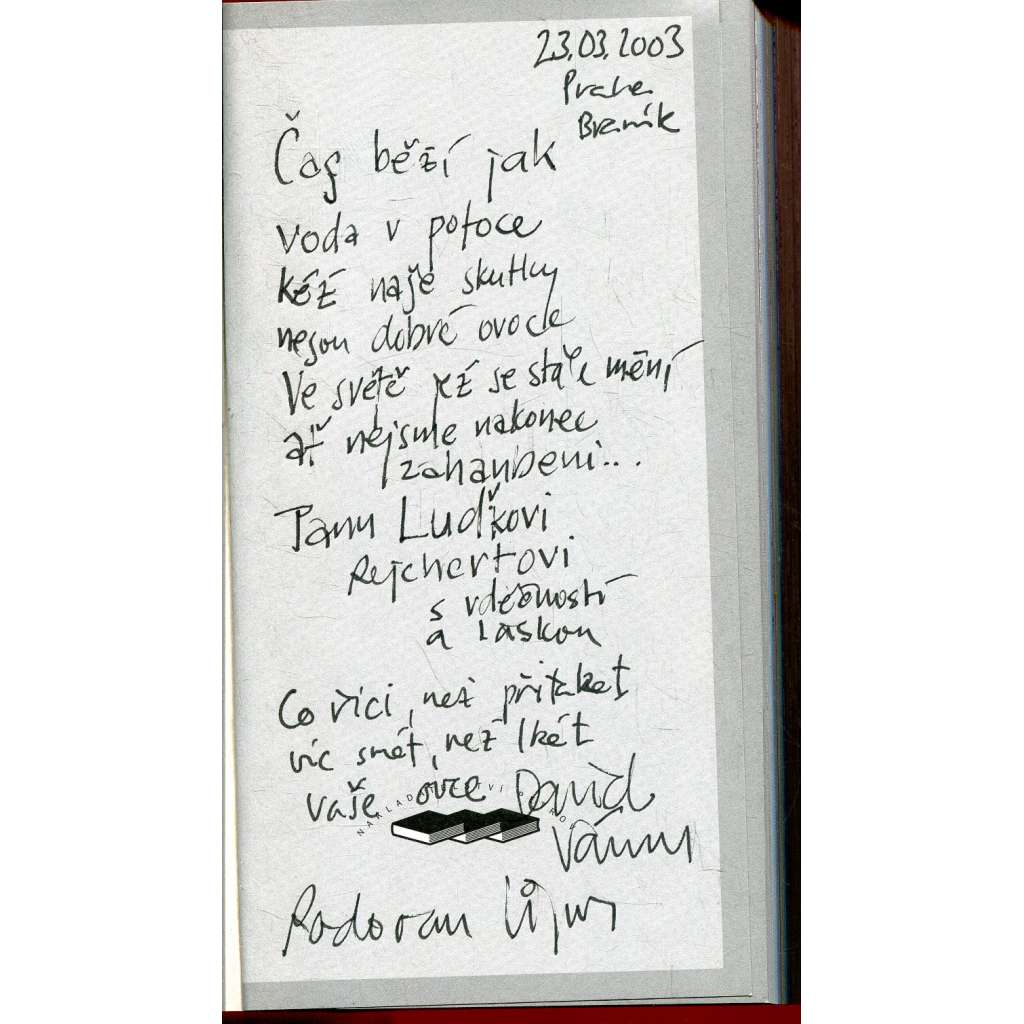 23.03.2003
Praha
Braník
Čas běží jak
voda v potoce
kéž naše skutky
nesou dobré ovoce
Ve světě jež se stále mění
ať nejsme nakonec
zahanbeni...
Panu Luďkovi
Rejchertovi
s vděčností
a láskou
Co říci, než přitakat
víc smát, než lkát
vaše ovce David
NAKLADATELSTVÍ
Radovan